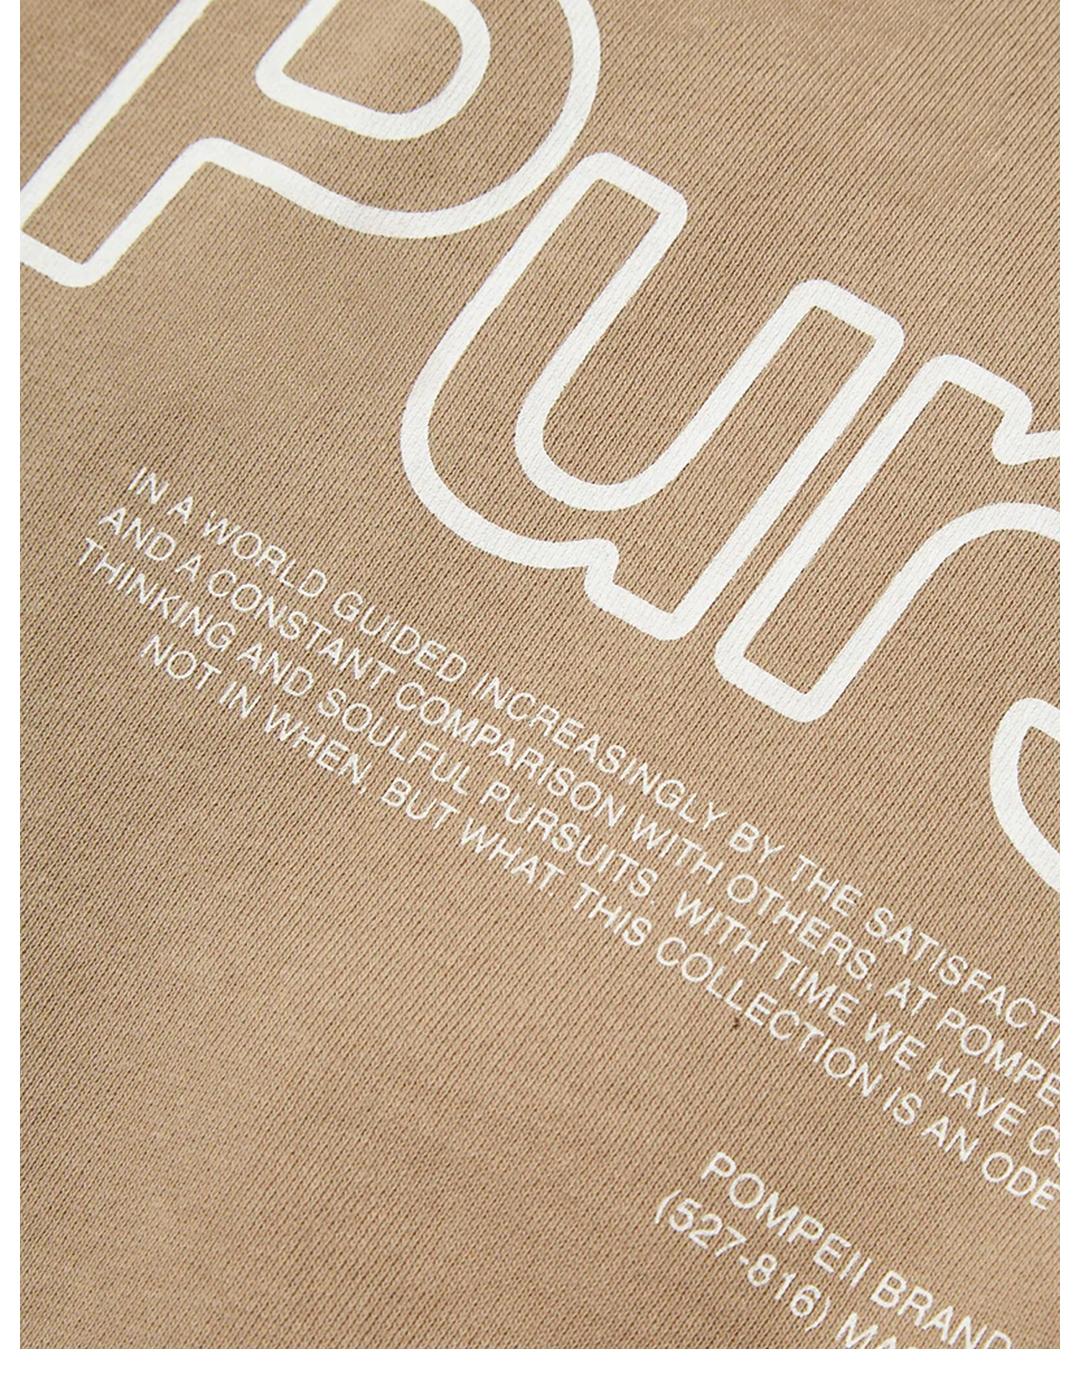 Pur
IN A WORLD GUIDED INCREASINGLY BY THE SATISFACT
AND A CONSTANT COMPARISON WITH OTHERS. AT POMPE
THINKING AND SOULFUL PURSUITS. WITH TIME WE HAVE CO
NOT IN WHEN, BUT WHAT. THIS COLLECTION IS AN ODE
POMPEII BRAND
(527-816) MA